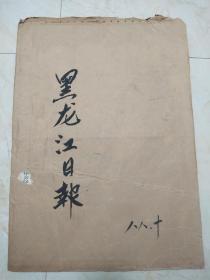 黑龙江日報
八八.十